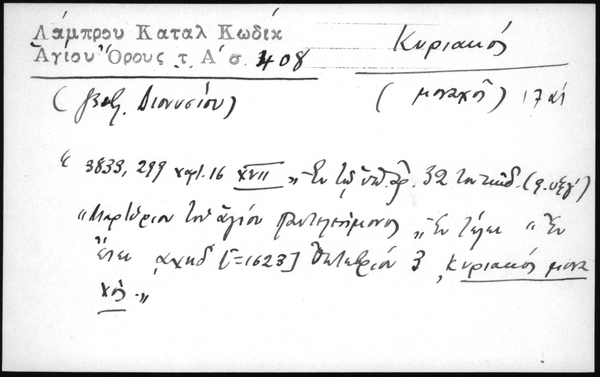 Λάμπρου Καταλ Κωδίκ
Ἁγίου Ὄρους τ. Α΄ σ. 408
Κυριακός
(βιβλ. Διονυσίου)
(μοναχός) 17 αἰ
3833, 299 χαρτ. 16 XVII „ Ἐν τῷ ὑπ' ἀρ. 32 του κώδ. (φ.
"Μαρτύριον τοῦ ἁγίου Παντελεήμονος „ Ἐν τέλει " Ἐν
ἔτει ͵αχκγ΄ [=1623] Ὀκτωβρίου 3, Κυριακός μονα
χός. „